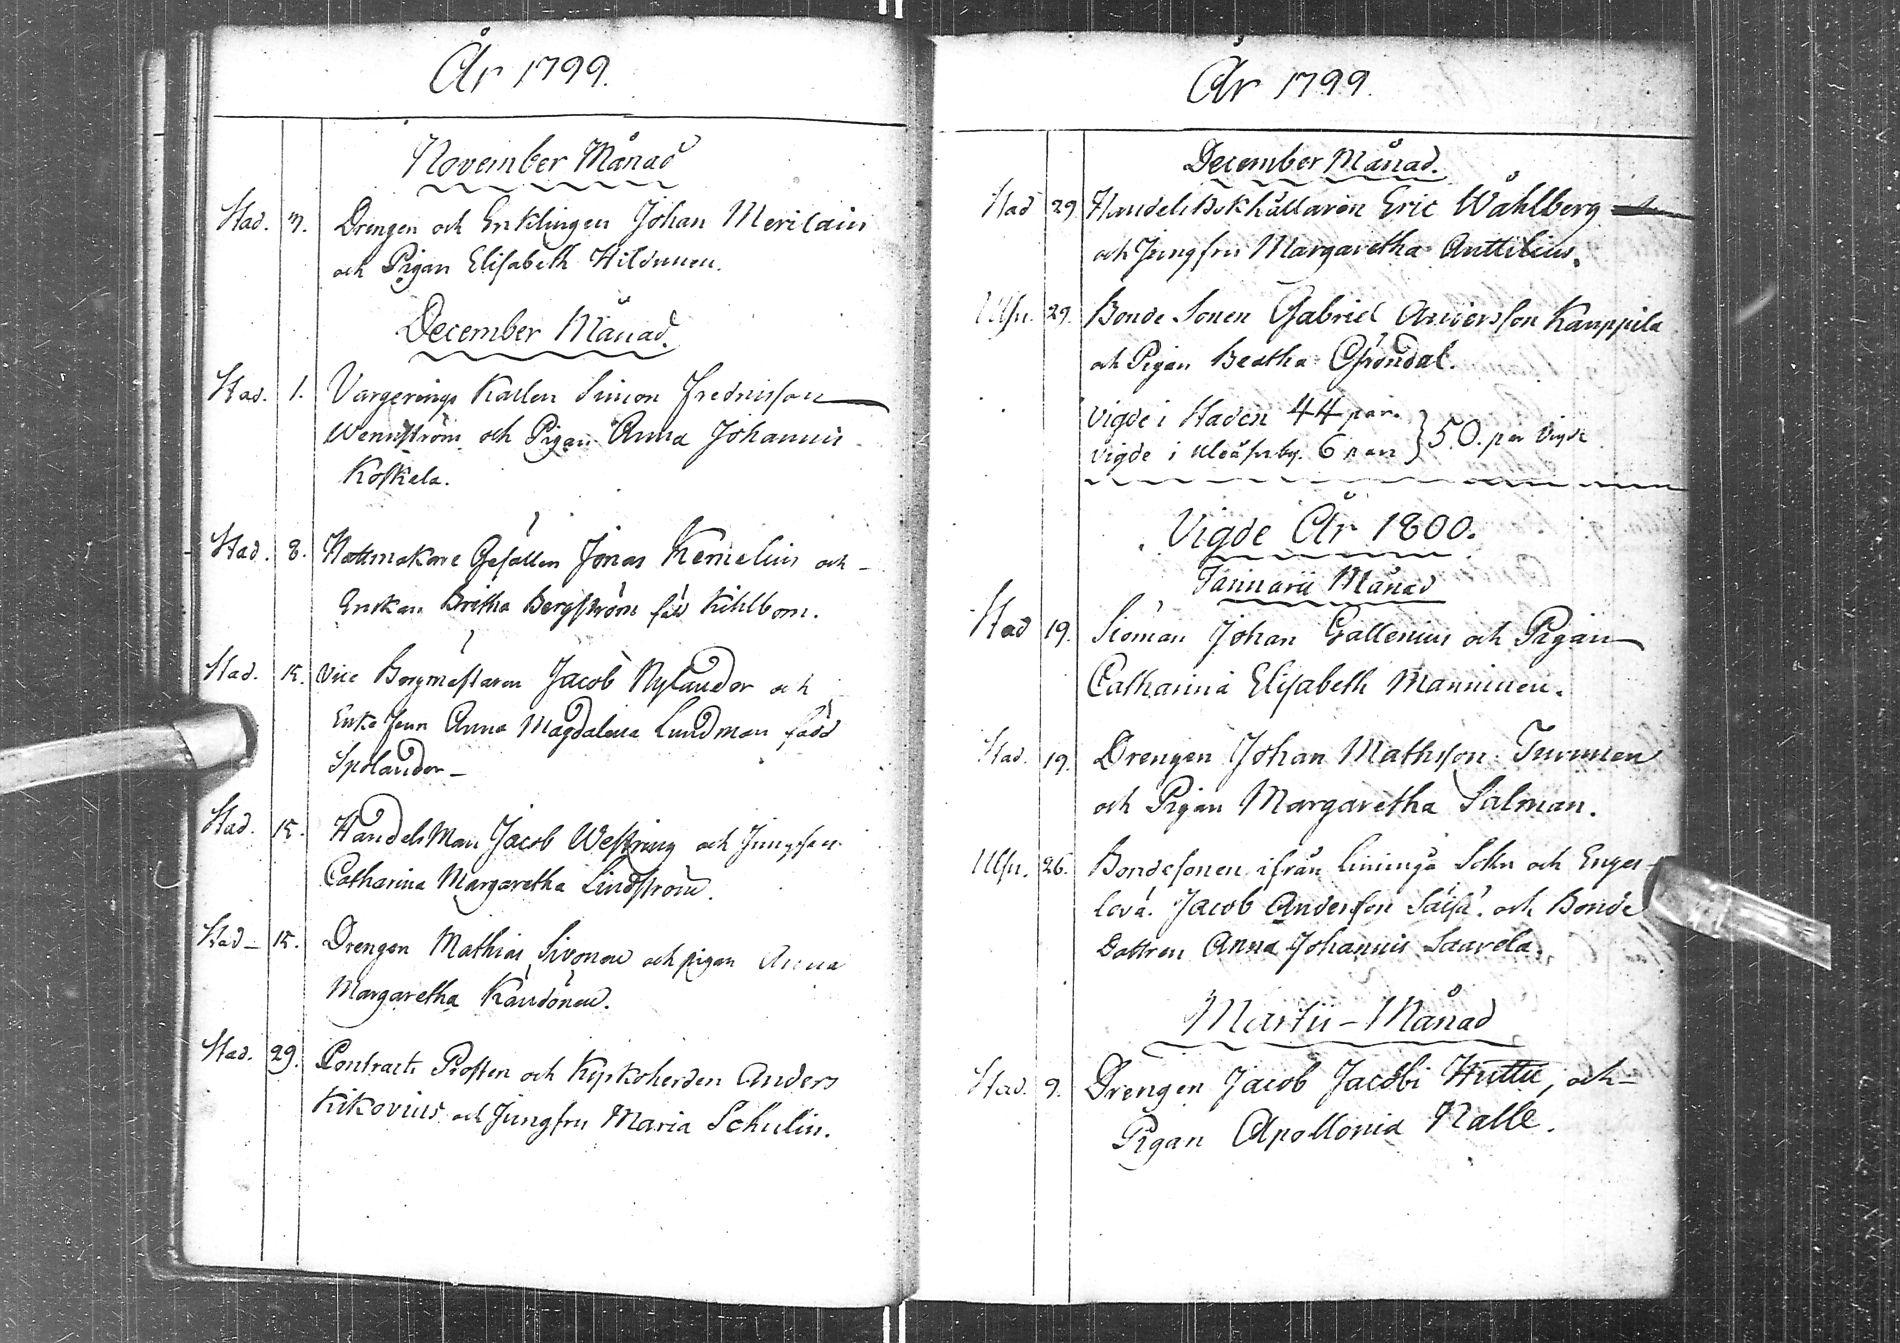 År 1799.
November Månad
Stad. 7. Drengen och Enklingen Johan Merilain
och Pigan Elisabeth Hildunen.
December Månad.
Stad. 1. Vargerings Karlen Simon Fredricsson
Wennström och Pigan Anna Johannis
Koskela.
Stad. 8. Hattmakare Gesällen Jonas Kemelius och
Enkan Britha Bergström föd Kihlbom.
Stad. 15. Vice Borgmästaren Jacob Nylander och
Enke Frun Anna Magdalena Lundman född
Spolander
Stad. 15. Handels Man Jacob Westring och Jungfrun
Catharina Margaretha Lindström.
Stad 15. Drengen Mathias Sivonen och pigan Anna
Margaretha
Stad. 29. Contracts Prosten och Kyrkoherden Anders
Kikovius och Jungfru Maria Schulin.
År 1799.
December Månad.
Stad 29 Handels Bokhållaren Eric Wåhlberg
och Jungfru Margaretha Anttilius.
29. Bonde Sonen Gabriel Andersson Kauppila
och Pigan Beatha Gröndal.
Vigde i Staden 44 par.
Vigde i Uleåsrby. 6 par } 50. par Vigde
Vigde År 1800.
Januarii Månad
Stad 19. Sjöman Johan Gallenius och Pigan
Catharina Elisabeth Manninen.
Stad. 19 Drengen Johan Mathsson Turunen
och Pigan Margaretha Salman.
26. Bondesonen ifrån Limingå Sokn och Enges-
levä. Jacob Andersson och Bonde
Dottren Anna Johannis Saarela.
Martii - Månad
Stad. 9. Drengen Jacob Jacobi Huttu, och
Pigan Apollonia Nalle.